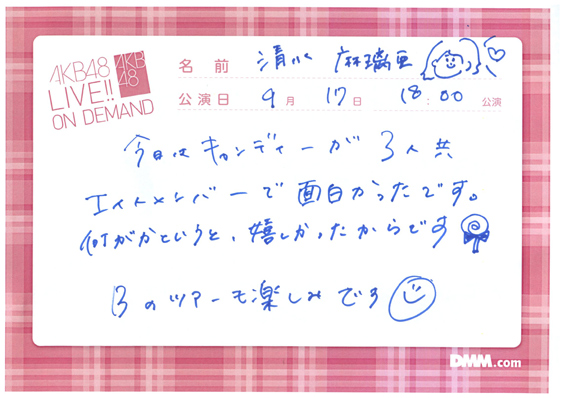 AKB48
LIVE!!
ON DEMAND
AKB
48
名前 清水 麻璃亜
公演日 9月 17日 18:00 公演
今日はキャンディーが3人共
エイトメンバーで面白かったです。
何がかというと、嬉しかったからです
Bのツアーも楽しみです
DMM.com